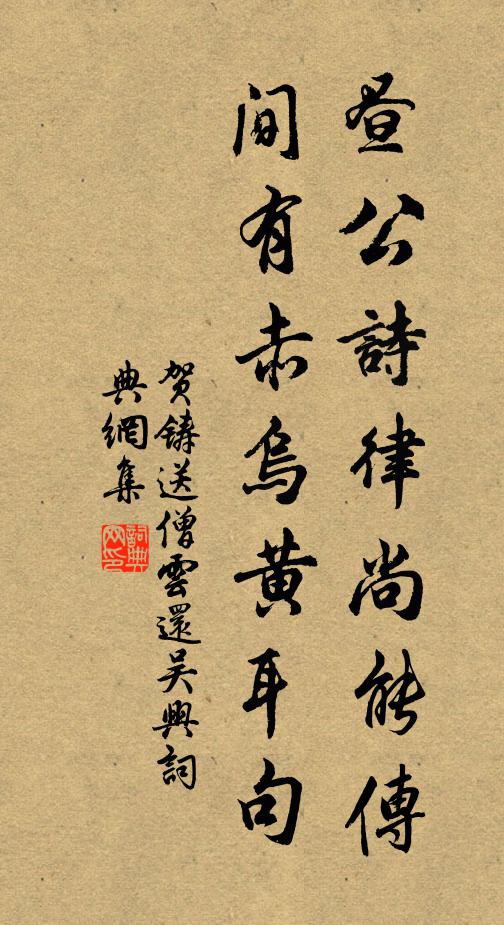 昼公詩律尚能傳
間有赤烏黃耳句
賀鑄送僧雲還吴興詞
典網集
詞典网印